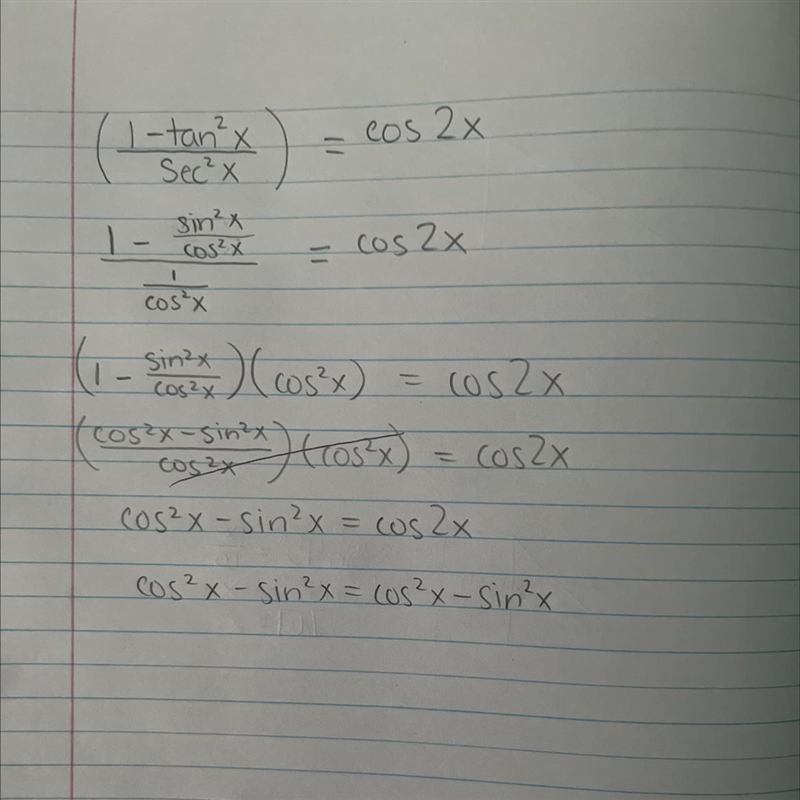 (1-tan²x / sec²x) = cos2x
(1 - sin²x/cos²x) / (1/cos²x) = cos2x
(1 - sin²x/cos²x)(cos²x) = cos2x
(cos²x-sin²x / cos²x)(cos²x) = cos2x
cos²x - sin²x = cos2x
cos²x - sin²x = cos²x - sin²x